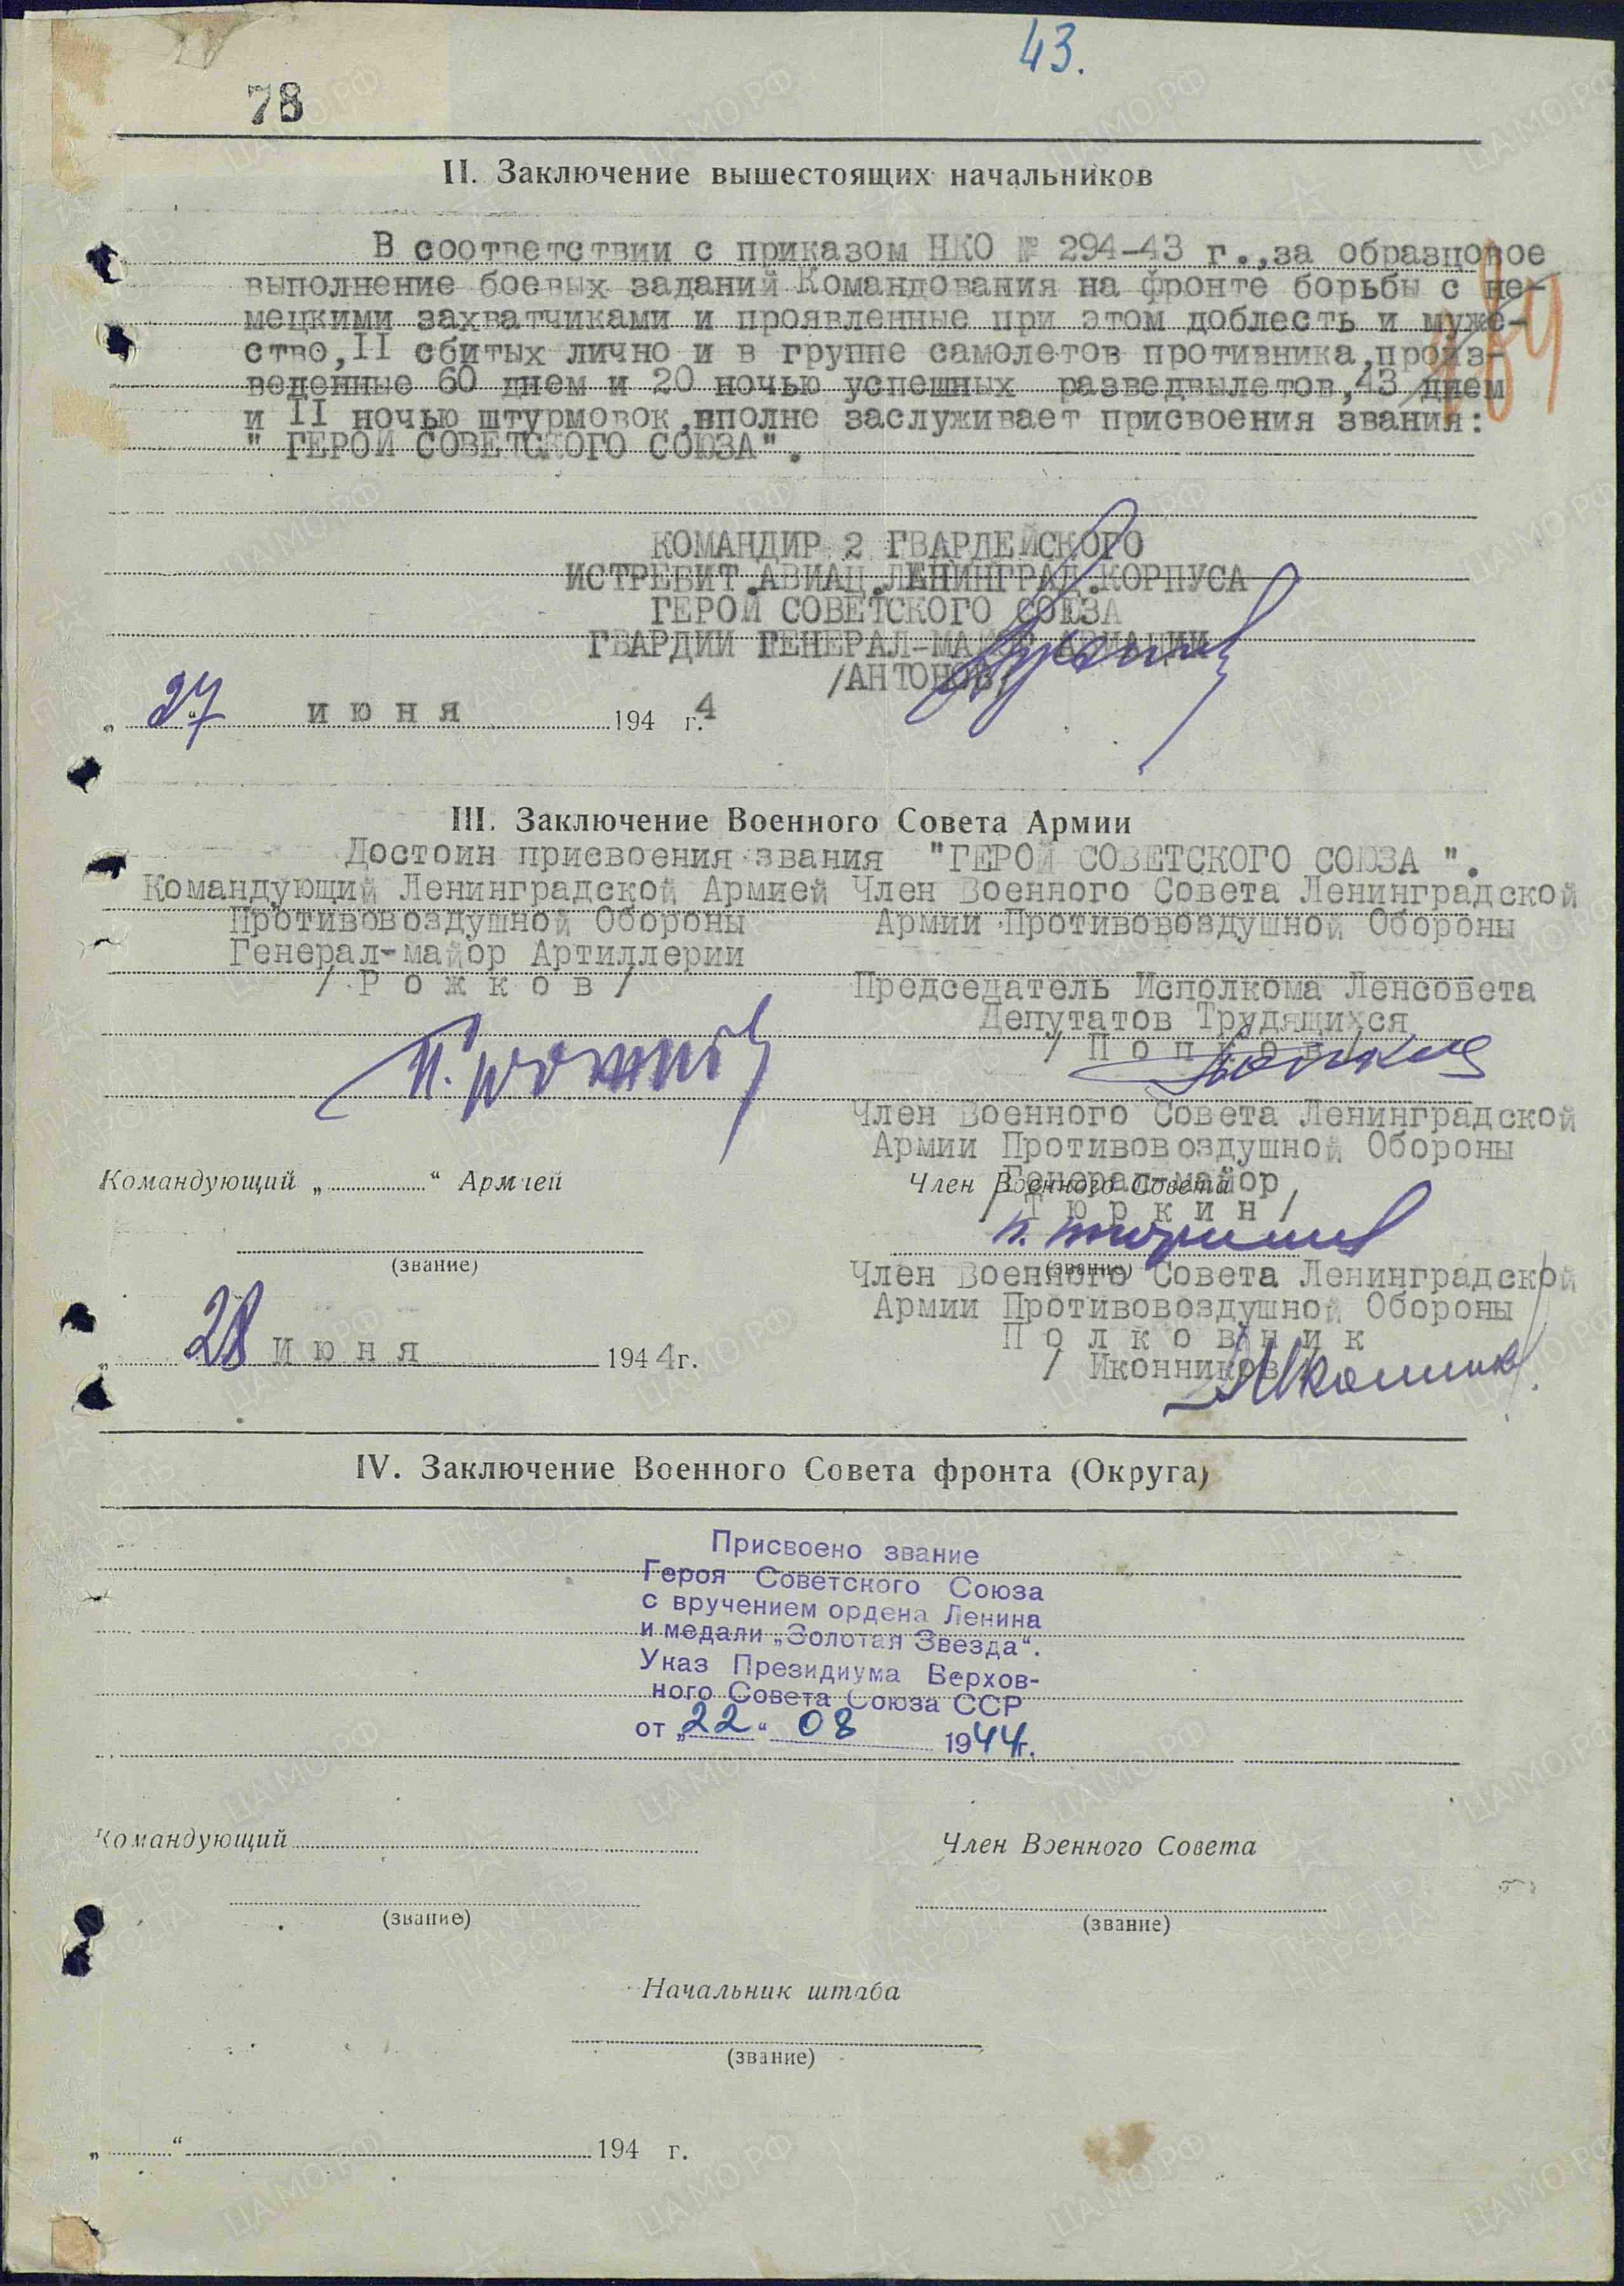 43.
78
II. Заключение вышестоящих начальников
В соответствии с приказом НКО № 294-43 г.,за образцовое
выполнение боевых заданий Командования на фронте борьбы с не-
мецкими захватчиками и проявленные при этом доблесть и муже-
ство,II сбитых лично и в группе самолетов противника,произ-
веденные 60 днем и 20 ночью успешных разведвылетов,43 днем
и II ночью штурмовок,вполне заслуживает присвоения звания:
" ГЕРОЙ СОВЕТСКОГО СОЮЗА".
КОМАНДИР 2 ГВАРДЕЙСКОГО
ИСТРЕБИТ.АВИАЦ.ЛЕНИНГРАД.КОРПУСА
ГЕРОЙ СОВЕТСКОГО СОЮЗА
ГВАРДИИ ГЕНЕРАЛ-МАЙОР АВИАЦИИ
/АНТОНОВ/
„ 27 “ июня 194 4 г.
III. Заключение Военного Совета Армии
Достоин присвоения звания "ГЕРОЙ СОВЕТСКОГО СОЮЗА ".
Командующий Ленинградской Армией Член Военного Совета Ленинградской
Противовоздушной Обороны Армии Противовоздушной Обороны
Генерал-майор Артиллерии
/ Р о ж к о в / Председатель Исполкома Ленсовета
Депутатов Трудящихся
/ П о п к о в /
Член Военного Совета Ленинградской
Армии Противовоздушной Обороны
Командующий „ “ Армией Член Военного Совета
Генерал-майор
/ Т ю р к и н /
(звание) (звание)
Член Военного Совета Ленинградской
Армии Противовоздушной Обороны
П о л к о в н и к
„ 28 июня 1944г. / Иконников/
IV. Заключение Военного Совета фронта (Округа)
Присвоено звание
Героя Советского Союза
с вручением ордена Ленина
и медали „Золотая Звезда“.
Указ Президиума Верхов-
ного Совета Союза ССР
от „22“ 08 1944г.
Командующий Член Военного Совета
(звание) (звание)
Начальник штаба
(звание)
„ “ 194 г.